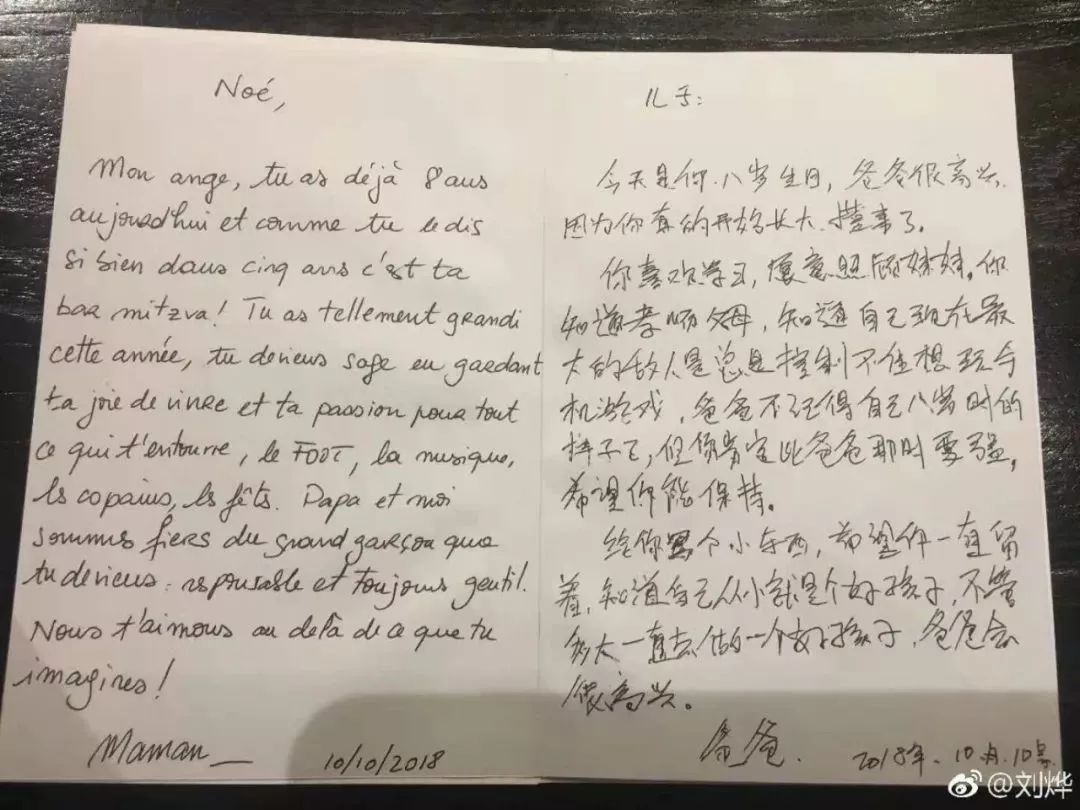 Noé,
Mon ange, tu as déjà 8 ans
aujourd'hui et comme tu le dis
si bien dans cinq ans c'est ta
bar mitzva! Tu as tellement grandi
cette année, tu deviens sage en gardant
ta joie de vivre et ta passion pour tout
ce qui t'entourre, le FOOT, la musique,
les copains, les fêts. Papa et moi
sommes fiers du grand garçon que
tu deviens: responsable et toujours gentil.
Nous t'aimons au delà de ce que tu
imagines!
Maman
10/10/2018
儿子:
今天是你八岁生日，爸爸很高兴.
因为你真的开始长大、懂事了。
你喜欢学习，愿意照顾妹妹。你
知道孝顺父母，知道自己现在最
大的敌人是总是控制不住想玩手
机游戏，爸爸不记得自己八岁时的
样子了，但你肯定比爸爸那时要强，
希望你能保持。
给你写个小东西，希望你一直留
着，知道自己从小就是个好孩子，不管
多大一直去做一个好孩子，爸爸会
很高兴。
爸爸.
2018年.10月.10号.
@刘烨